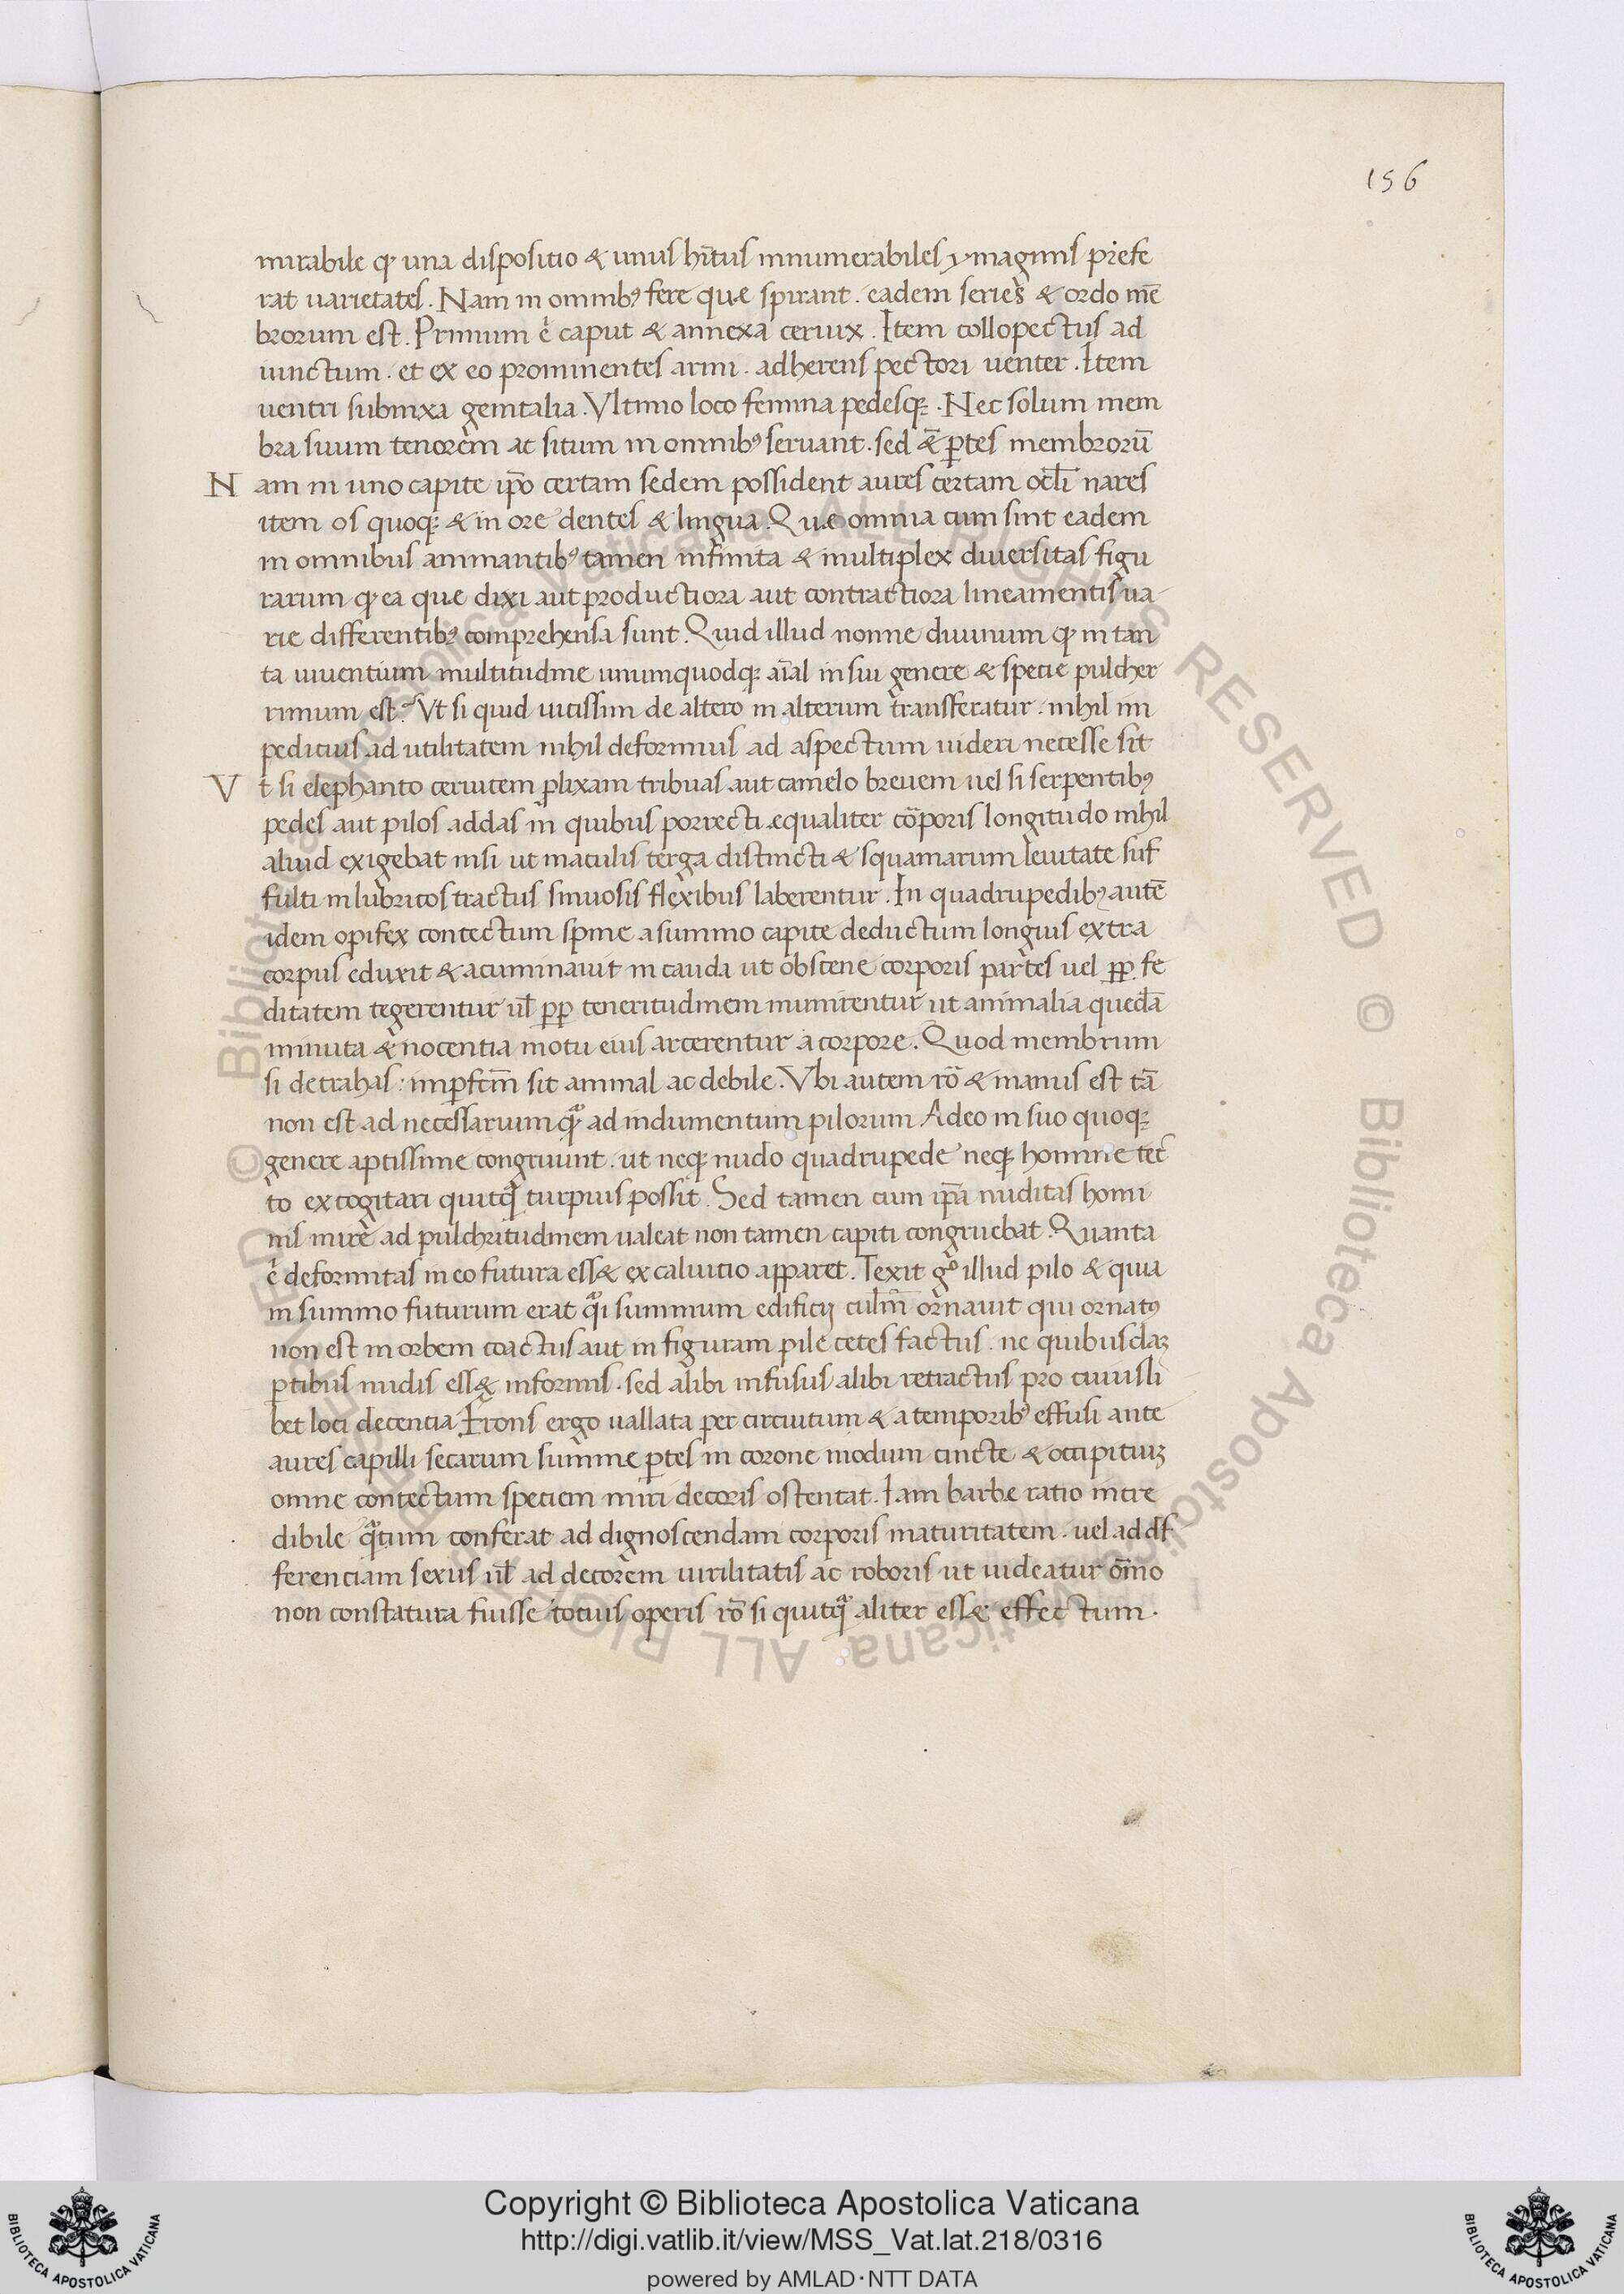 156
mirabile qꝫ una dispositio & unus hītus innumerabiles ymaginis prefe
rat uarietates. Nam in omnibꝰ fere quæ spirant. eadem series & ordo mē
brorum est. Primum ē caput & annexa ceruix. Item collo pectus ad
iunctum. et ex eo prominentes armi. adherens pectori uenter. Item
uentri subnixa genitalia. Vltimo loco femina pedesqꝫ. Nec solum mem
bra suum tenorem ac situm in omnibꝰ seruant. sed & ꝑtes membrorū
Nam in uno capite ip̄o certam sedem possident aures certam ocl̄i nares
item os quoqꝫ & in ore dentes & lingua. Quæ omnia cum sint eadem
in omnibus animantibꝰ tamen infinita & multiplex diuersitas figu
rarum qꝫ ea que dixi aut productiora aut contractiora lineamentis ua-
rie differentibꝰ comprehensa sunt. Quid illud nonne diuinum qꝫ in tan
ta uiuentium multitudine unumquodqꝫ aīal in sui genere & specie pulcher
rimum est? Vt si quid uicissim de altero in alterum transferatur. nihil im
peditius ad utilitatem nihil deformius ad aspectum uideri necesse sit
Vt si elephanto ceruicem ꝓlixam tribuas aut camelo breuem uel si serpentibꝰ
pedes aut pilos addas in quibus porrecti equaliter corporis longitudo nihil
aliud exigebat nisi ut maculis terga distincti & squamarum leuitate suf
fulti in lubricos tractus sinuosis flexibus laberentur. In quadrupedibꝰ autē
idem opifex contectum spine a summo capite deductum longius extra
corpus eduxit & acuminauit in cauda ut obscene corporis partes uel ꝓꝑ fe
ditatem tegerentur ul̄ ꝓꝑ teneritudinem munirentur ut animalia quedā
minuta & nocentia motu eius arcerentur a corpore. Quod membrum
si detrahas: imꝑfctm̄ sit animal ac debile. Vbi autem rō & manus est tā
non est ad necessarium qͣꝫ ad indumentum pilorum Adeo in suo quoqꝫ
genere aptissime congruunt. ut neqꝫ nudo quadrupede neqꝫ homine tec
to excogitari quicqͣꝫ turpius possit. Sed tamen cum ip̄a nuditas homi
nis mire ad pulchritudinem ualeat non tamen capiti congruebat. Quanta
ē deformitas in eo futura esset ex caluitio apparet. Texit gͦ illud pilo & quia
in summo futurum erat qͣi summum edificij culm̄ ornauit qui ornatꝰ
non est in orbem coactus aut in figuram pile cetes factus. ne quibusdaꝫ
ꝑtibus nudis esset informis. sed alibi infusus alibi retractus pro cuiusli
bet loci decentia. Frons ergo uallata per circuitum & a temporibꝰ effusi ante
aures capilli secarum summe ꝑtes in corone modum cincte & occipitiuꝫ
omne contectum speciem miri decoris ostentat. Iam barbe ratio incre
dibile qͣtum conferat ad dignoscendam corporis maturitatem. uel ad df
ferenciam sexus ul̄ ad decorem uirilitatis ac roboris ut uideatur oīno
non constatura fuisse totius operis rō si quicqͣꝫ aliter esset effectum.
© Biblioteca Apostolica Vaticana. ALL RIGHTS RESERVED
Copyright © Biblioteca Apostolica Vaticana
http://digi.vatlib.it/view/MSS_Vat.lat.218/0316
powered by AMLAD·NTT DATA
BIBLIOTECA APOSTOLICA VATICANA
BIBLIOTECA APOSTOLICA VATICANA